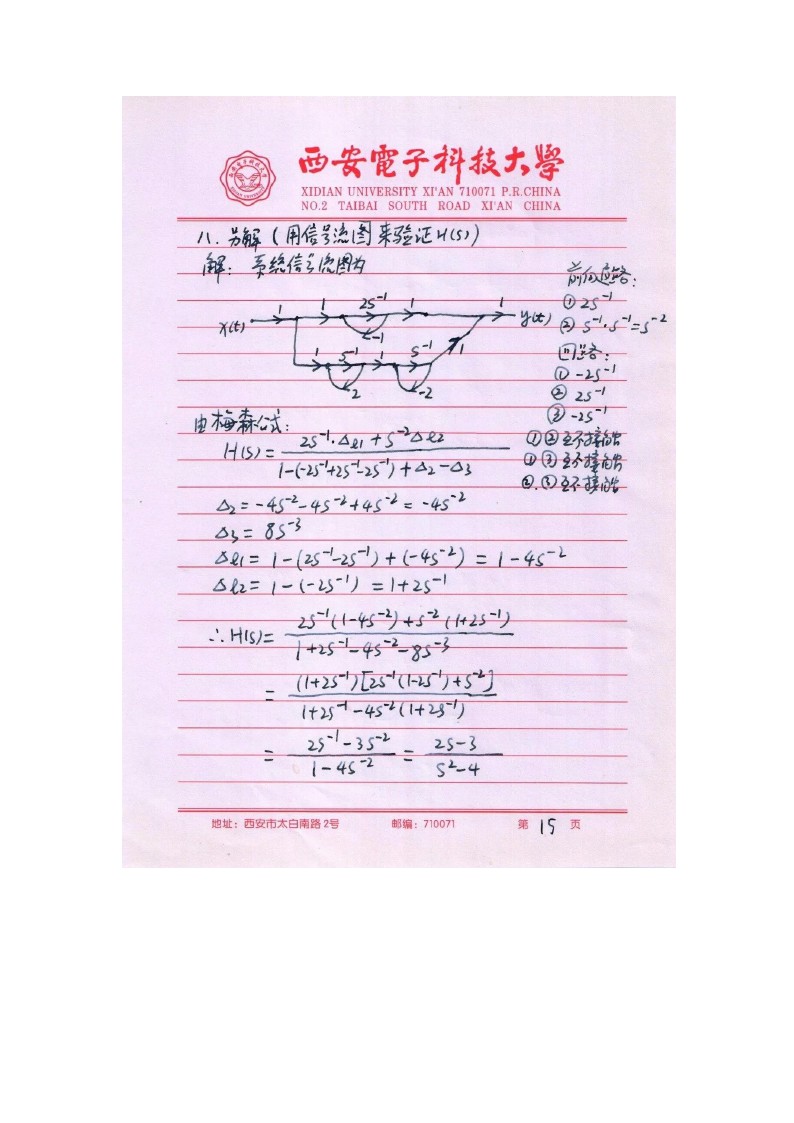 西安電子科技大學
XIDIAN UNIVERSITY XI'AN 710071 P.R.CHINA
NO.2 TAIBAI SOUTH ROAD XI'AN CHINA
八. 另解 (用信号流图来验证H(s))
解: 系统信号流图为
x(t) 1 1 2s⁻¹ 1 1 y(t)
-1
1 s⁻¹ 1 s⁻¹ 1
2 -2
前向通路:
① 2s⁻¹
② s⁻¹·s⁻¹=s⁻²
回路:
① -2s⁻¹
② 2s⁻¹
③ -2s⁻¹
①②互不接触
①③互不接触
②.③互不接触
由梅森公式:
H(s) = (2s⁻¹·Δl1 + s⁻²Δl2) / (1-(-2s⁻¹+2s⁻¹-2s⁻¹) + Δ2 - Δ3)
Δ2 = -4s⁻² - 4s⁻² + 4s⁻² = -4s⁻²
Δ3 = 8s⁻³
Δl1 = 1-(2s⁻¹-2s⁻¹) + (-4s⁻²) = 1-4s⁻²
Δl2 = 1-(-2s⁻¹) = 1+2s⁻¹
∴H(s) = (2s⁻¹(1-4s⁻²) + s⁻²(1+2s⁻¹)) / (1+2s⁻¹-4s⁻²-8s⁻³)
= ((1+2s⁻¹)[2s⁻¹(1-2s⁻¹)+s⁻²]) / (1+2s⁻¹-4s⁻²(1+2s⁻¹))
= (2s⁻¹-3s⁻²) / (1-4s⁻²) = (2s-3) / (s²-4)
地址: 西安市太白南路2号 邮编: 710071 第 15 页